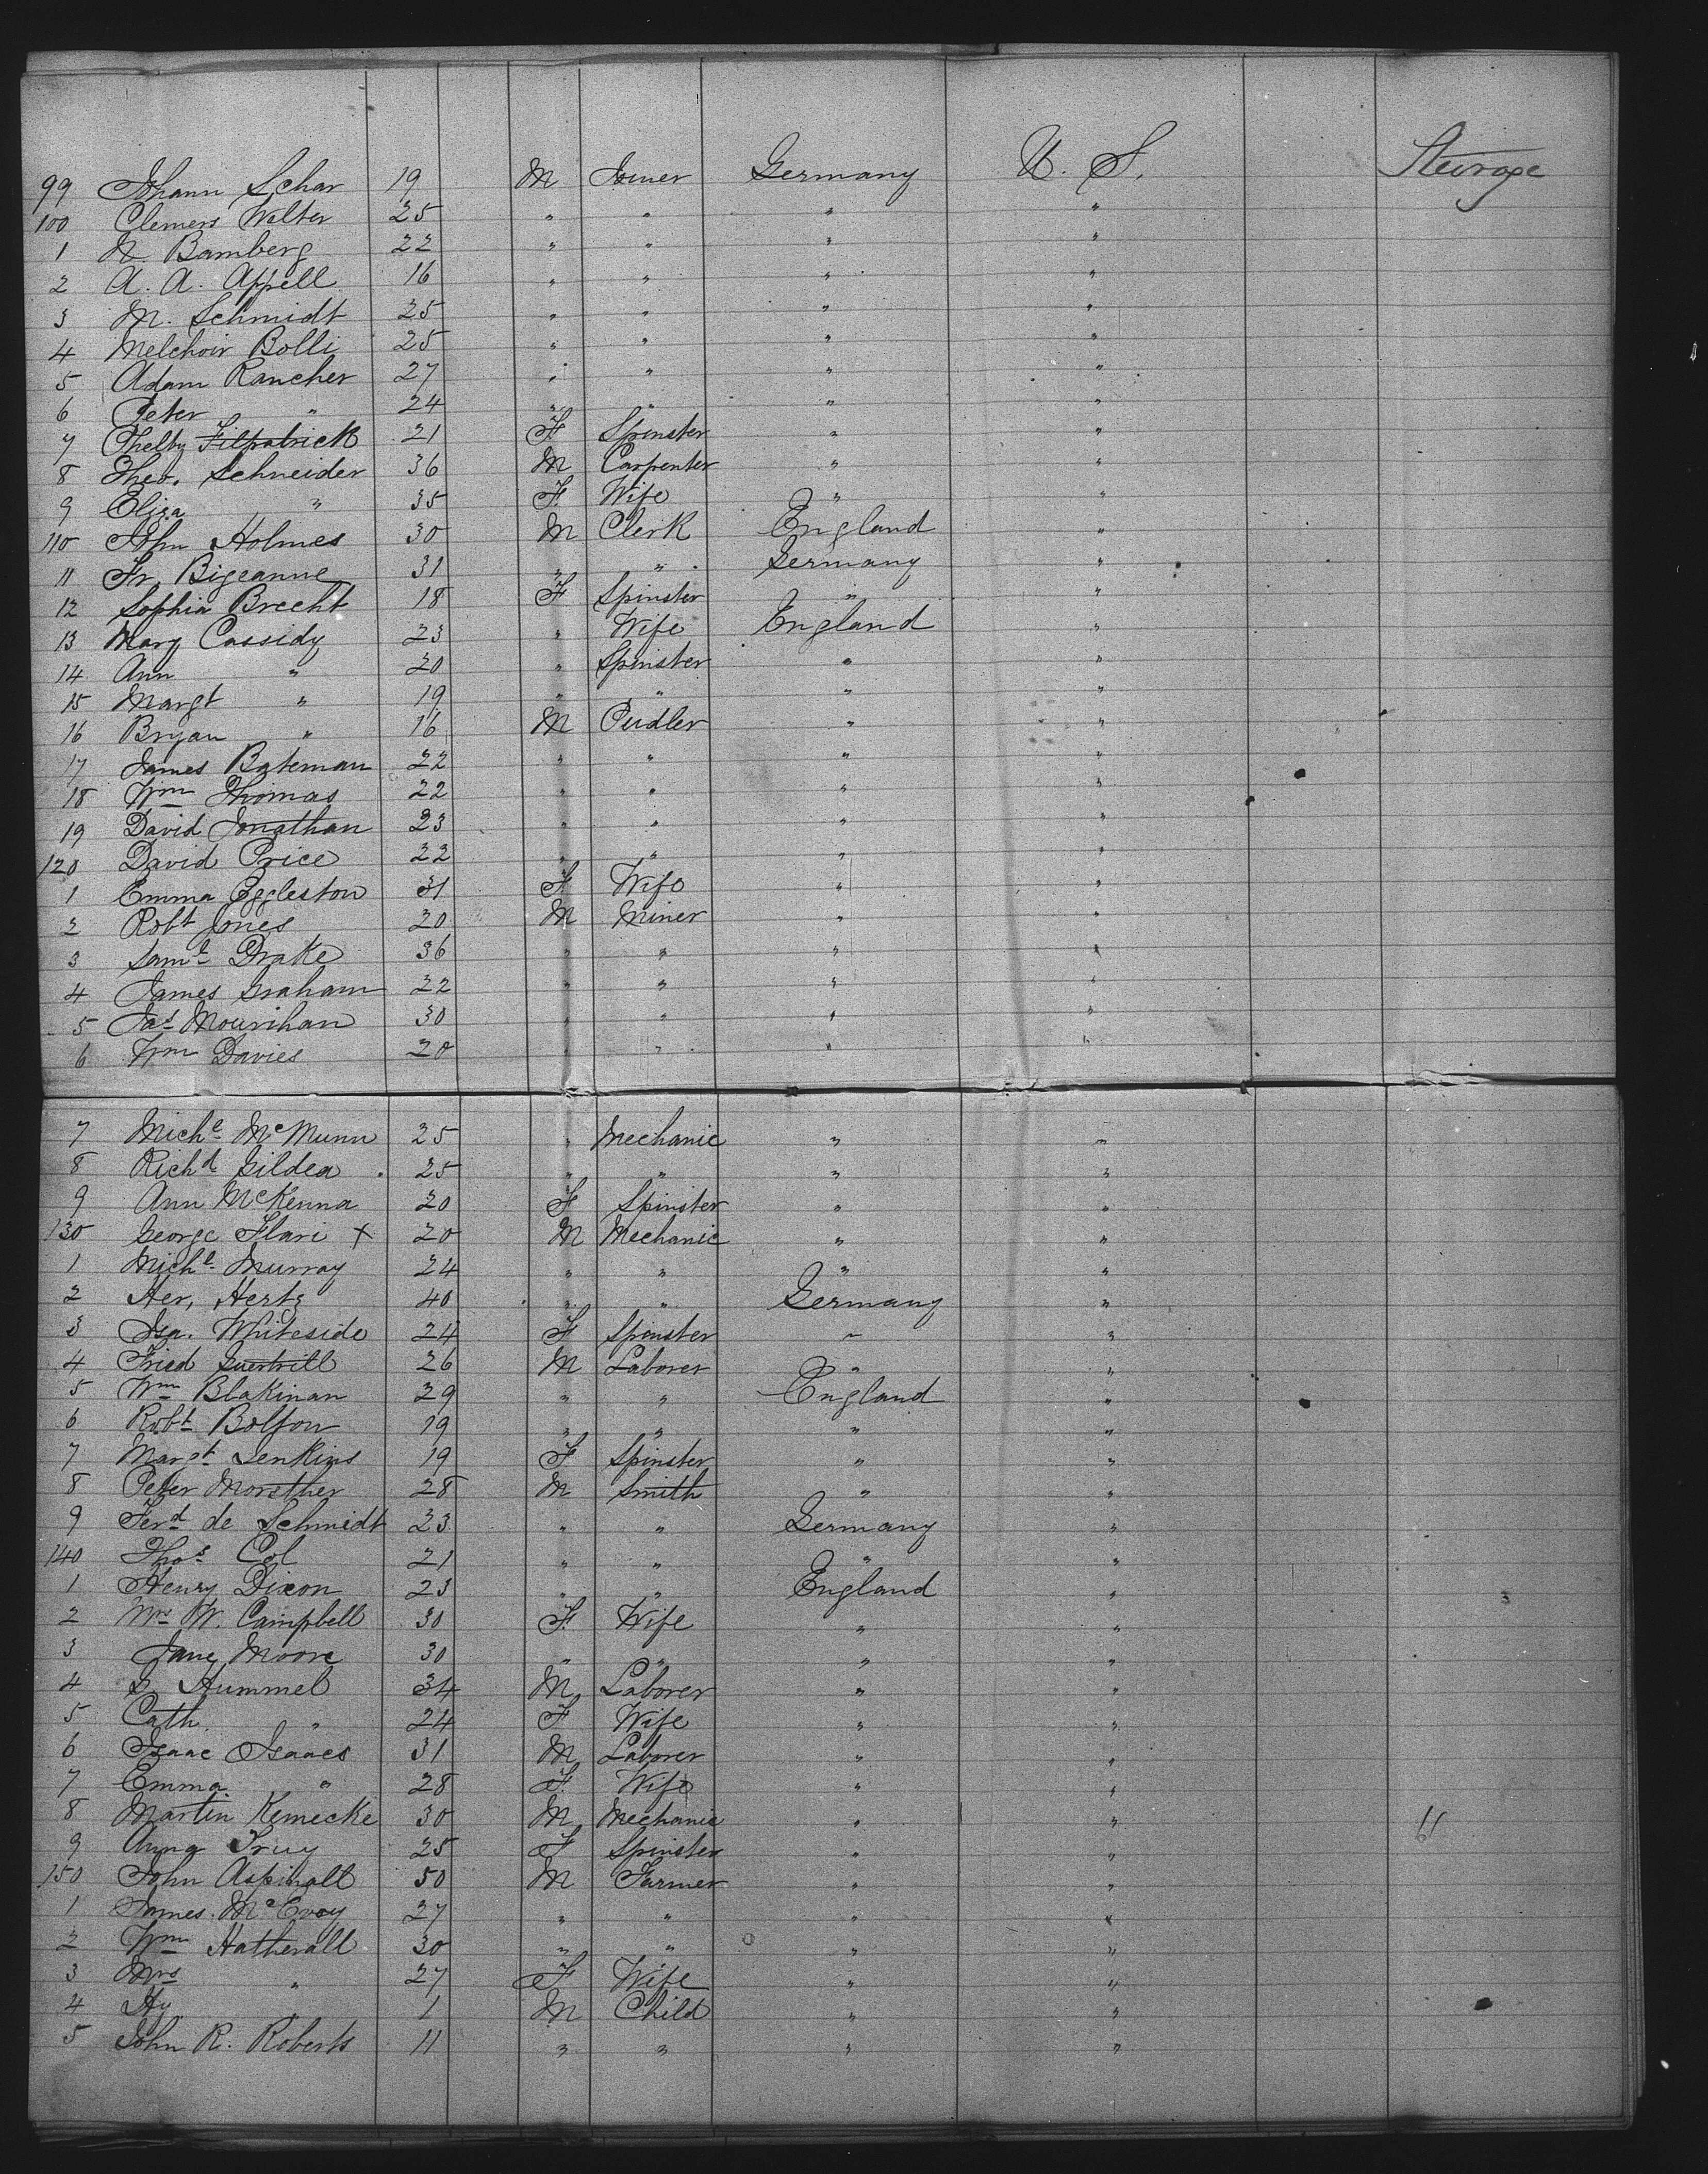 99 Johann Schar 19 M Joiner Germany U. S. Steerage
100 Clemens Walter 25 " " " "
1 N. Bamberg 22 " " " "
2 A. A. Appell 16 " " " "
3 M. Schmidt 25 " " " "
4 Melchoir Bolli 25 " " " "
5 Adam Rancher 27 " " " "
6 Peter " 24 " " " "
7 Fitzpatrick 21 F Spinster " "
8 Theo. Schneider 36 M Carpenter " "
9 Eliza " 35 F Wife " "
110 John Holmes 30 M Clerk England "
11 Fr. Bigeanne 31 " " Germany "
12 Sophia Brecht 18 F Spinster " "
13 Mary Cassidy 23 " Wife England "
14 Ann " 20 " Spinster " "
15 Margt " 19 " " " "
16 Bryan " 16 M Pudler " "
17 James Bateman 22 " " " "
18 Wm Thomas 22 " " " "
19 David Jonathan 23 " " " "
120 David Price 22 " " " "
1 Emma Eggleston 31 F Wife " "
2 Robt Jones 20 M Miner " "
3 Saml Drake 36 " " " "
4 James Graham 22 " " " "
5 Jas Mourihan 30 " " " "
6 Wm Davies 20 " " " "
7 Michl McMunn 25 " Mechanic " "
8 Richd Gildea 25 " " " "
9 Ann McKenna 20 F Spinster " "
130 George Flari X 20 M Mechanic " "
1 Michl Murray 24 " " " "
2 Her. Hertz 40 " " Germany "
3 Isa. Whiteside 24 F Spinster " "
4 Fried 26 M Laborer " "
5 Wm Blakinan 29 " " England "
6 Robt Bolton 19 " " " "
7 Margt Jenkins 19 F Spinster " "
8 Peter Morether 28 M Smith " "
9 Ferd de Schmidt 23 " " Germany "
140 Thos Col 21 " " " "
1 Henry Dixon 23 " " England "
2 Mrs W. Campbell 30 F Wife " "
3 Jane Moore 30 " " " "
4 S. Hummel 34 M Laborer " "
5 Cath. " 24 F Wife " "
6 Isaac Isaacs 31 M Laborer " "
7 Emma " 28 F Wife " "
8 Martin Kemecke 30 M Mechanic " " "
9 Anna 25 F Spinster " "
150 John Aspinall 50 M Farmer " "
1 James McEvoy 27 " " " "
2 Wm Hatherall 30 " " " "
3 Mrs " 27 F Wife " "
4 Hy " 1 M Child " "
5 John R. Roberts 11 " " " "